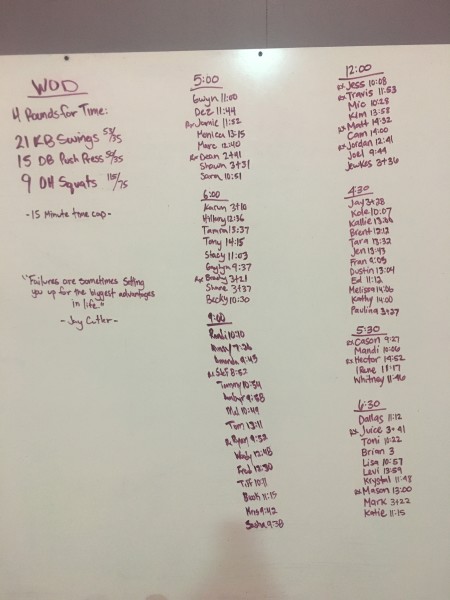 WOD
4 Rounds for Time:
21 KB Swings 53/35
15 DB Push Press 50/35
9 OH Squats 115/75
-15 Minute time cap-
"Failures are sometimes setting
you up for the biggest advantages
in life"
-Jay Cutler-
5:00
Gwyn 11:00
Dez 11:44
Rx Jamie 11:52
Monica 13:15
Marc 12:40
Rx Dean 2+41
Shawn 3+31
Sara 10:51
6:00
Karyn 3+10
Hillary 12:36
Tamra 13:37
Tony 14:15
Stacy 11:03
9:37
Rx Brady 3+21
Shane 3+37
Becky 10:30
9:00
Randi 10:10
9:26
Amanda 9:43
Rx 8:52
Tammy 10:34
9:58
Mel 10:49
Tom 13:11
Rx Ryan 9:32
Wendy 12:48
Fred 12:30
Tiff 10:11
11:15
Kris 9:42
Sasha 9:38
12:00
Rx Jess 10:08
Rx Travis 11:53
Mio 10:28
Kim 13:58
Rx Matt 14:32
Cam 14:00
Rx Jordan 12:41
Joel 9:44
Jewkes 3+36
4:30
Jay 3+28
Kole 10:07
Kallie 13:36
Brent 12:12
Tara 13:32
Jen 13:43
Fran 9:09
Dustin 13:04
Ed 11:12
Melissa 14:06
Kathy 14:00
Paulina 3+27
5:30
Rx Cason 9:27
Mandi 10:06
Rx Hector 14:52
Irene 11:17
Whitney 11:46
6:30
Dallas 11:12
Rx Juice 3+41
Toni 11:22
Brian 3
Lisa 10:57
Levi 13:59
Krystal 11:48
Rx Mason 13:00
Mark 3+22
Katie 11:15